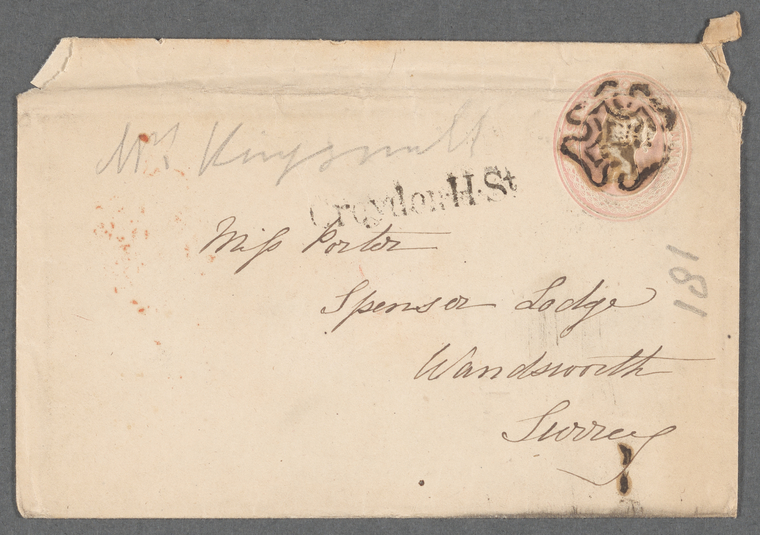 Mrs Kingsmill
Croydon·H·St
Miss Porter
Spenser Lodge
Wandsworth
Surrey
181